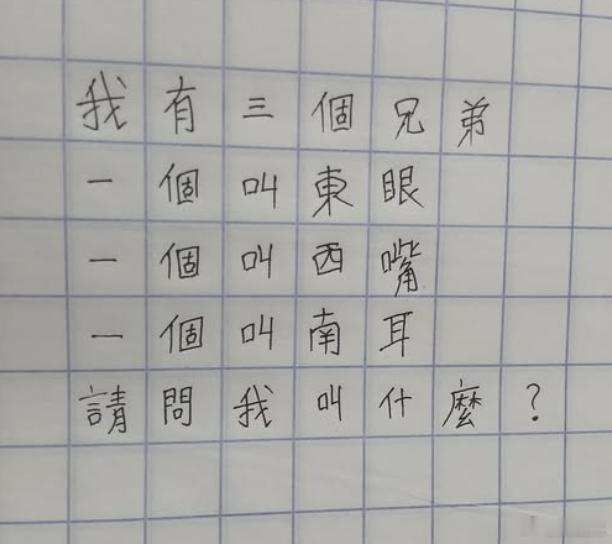 我有三個兄弟
一個叫東眼
一個叫西嘴
一個叫南耳
請問我叫什麼?